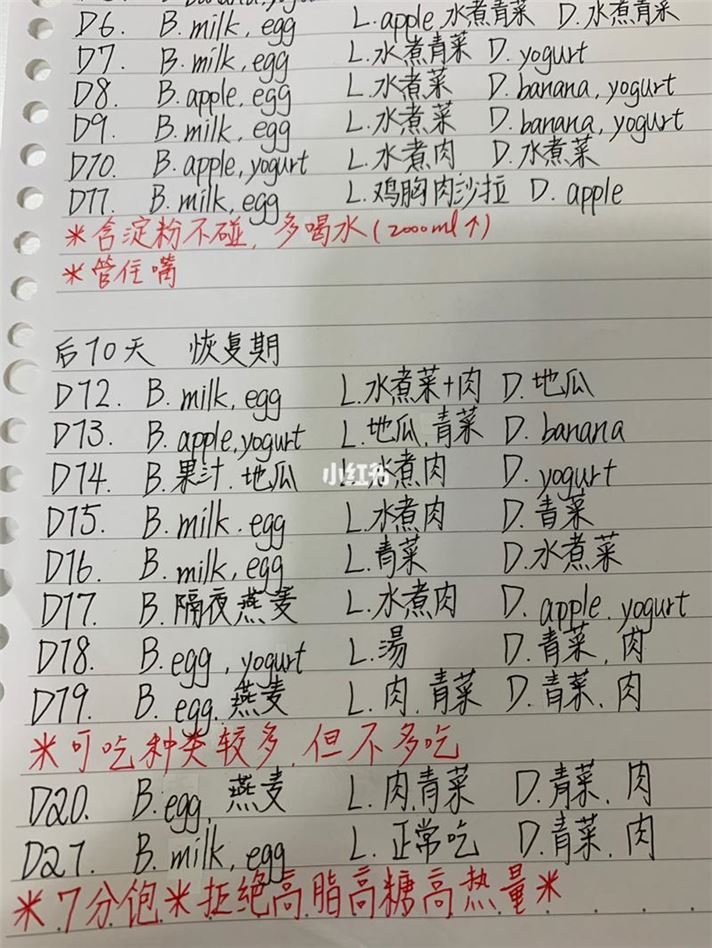 banana, yogurt
D6. B. milk, egg L. apple, 水煮青菜 D. 水煮青菜
D7. B. milk, egg L. 水煮青菜 D. yogurt
D8. B. apple, egg L. 水煮菜 D. banana, yogurt
D9. B. milk, egg L. 水煮菜 D. banana, yogurt
D10. B. apple, yogurt L. 水煮肉 D. 水煮菜
D11. B. milk, egg L. 鸡胸肉沙拉 D. apple
*含淀粉不碰, 多喝水(2000ml↑)
*管住嘴
后10天 恢复期
D12. B. milk, egg L. 水煮菜+肉 D. 地瓜
D13. B. apple, yogurt L. 地瓜, 青菜 D. banana
D14. B. 果汁, 地瓜 L. 水煮肉 D. yogurt
小红书
D15. B. milk, egg L. 水煮肉 D. 青菜
D16. B. milk, egg L. 青菜 D. 水煮菜
D17. B. 隔夜燕麦 L. 水煮肉 D. apple, yogurt
D18. B. egg, yogurt L. 湯 D. 青菜, 肉
D19. B. egg, 燕麦 L. 肉, 青菜 D. 青菜, 肉
*可吃种类较多, 但不多吃
D20. B. egg, 燕麦 L. 肉, 青菜 D. 青菜, 肉
D21. B. milk, egg L. 正常吃 D. 青菜, 肉
*7分饱*拒绝高脂高糖高热量*